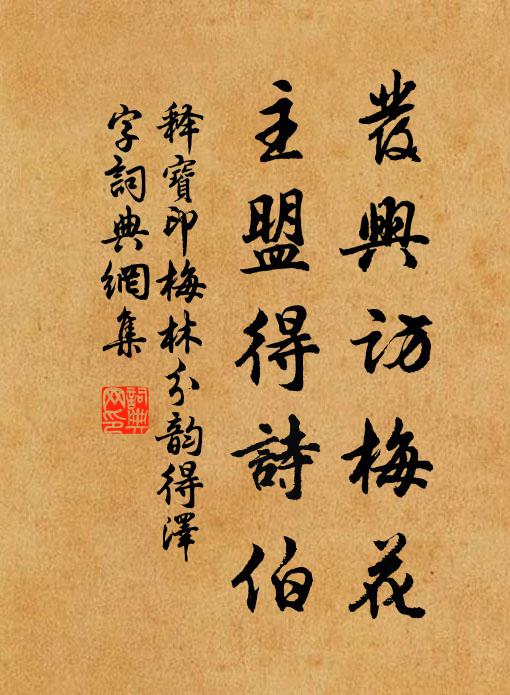 發興訪梅花
主盟得詩伯
釋寶印梅林分韵得澤
字詞典網集
詞典
网印